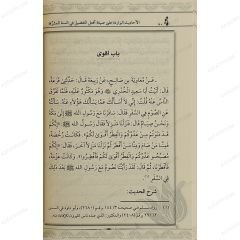 باب أقوى
عَنْ مُعَاوِيَةَ بْنِ صَالِحٍ، عَنْ رَبِيعَةَ قَالَ: حَدَّثَنِي قَزَعَةُ،
قَالَ: أَتَيْتُ أَبَا سَعِيدٍ الْخُدْرِيَّ ﷺ وَهُوَ مَكْثُورٌ عَلَيْهِ، فَلَمَّا تَفَرَّقَ
النَّاسُ عَنْهُ قُلْتُ: إِنِّي لَا أَسْأَلُكَ عَمَّا يَسْأَلُكَ هَؤُلَاءِ عَنْهُ، سَأَلْتُهُ عَنِ
الصَّوْمِ فِي السَّفَرِ فَقَالَ: سَافَرْنَا مَعَ رَسُولِ اللهِ ﷺ إِلَى مَكَّةَ وَنَحْنُ
صِيَامٌ، قَالَ: فَنَزَلْنَا مَنْزِلًا فَقَالَ رَسُولُ اللهِ ﷺ: إِنَّكُمْ
قَدْ دَنَوْتُمْ مِنْ عَدُوِّكُمْ وَالْفِطْرُ أَقْوَى لَكُمْ، فَكَانَتْ رُخْصَةً،
فَمِنَّا مَنْ صَامَ وَمِنَّا مَنْ أَفْطَرَ، ثُمَّ نَزَلْنَا مَنْزِلًا آخَرَ، فَقَالَ: إِنَّكُمْ
مُصَبِّحُو عَدُوِّكُمْ وَالْفِطْرُ أَقْوَى لَكُمْ فَأَفْطِرُوا، وَكَانَتْ عَزْمَةً،
فَأَفْطَرْنَا، ثُمَّ قَالَ: لَقَدْ رَأَيْتُنَا نَصُومُ مَعَ رَسُولِ اللهِ ﷺ بَعْدَ ذَلِكَ
فِي السَّفَرِ (١).
شرح الحديث: